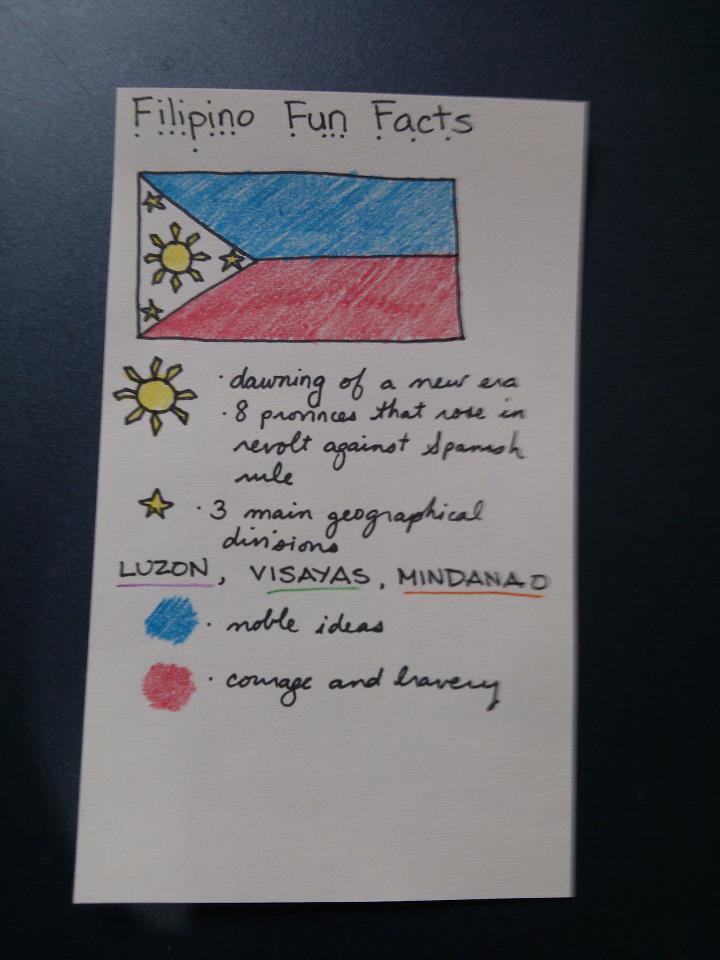 Filipino Fun Facts
· dawning of a new era
· 8 provinces that rose in
revolt against Spanish
rule
· 3 main geographical
divisions
LUZON, VISAYAS, MINDANAO
· noble ideas
· courage and bravery